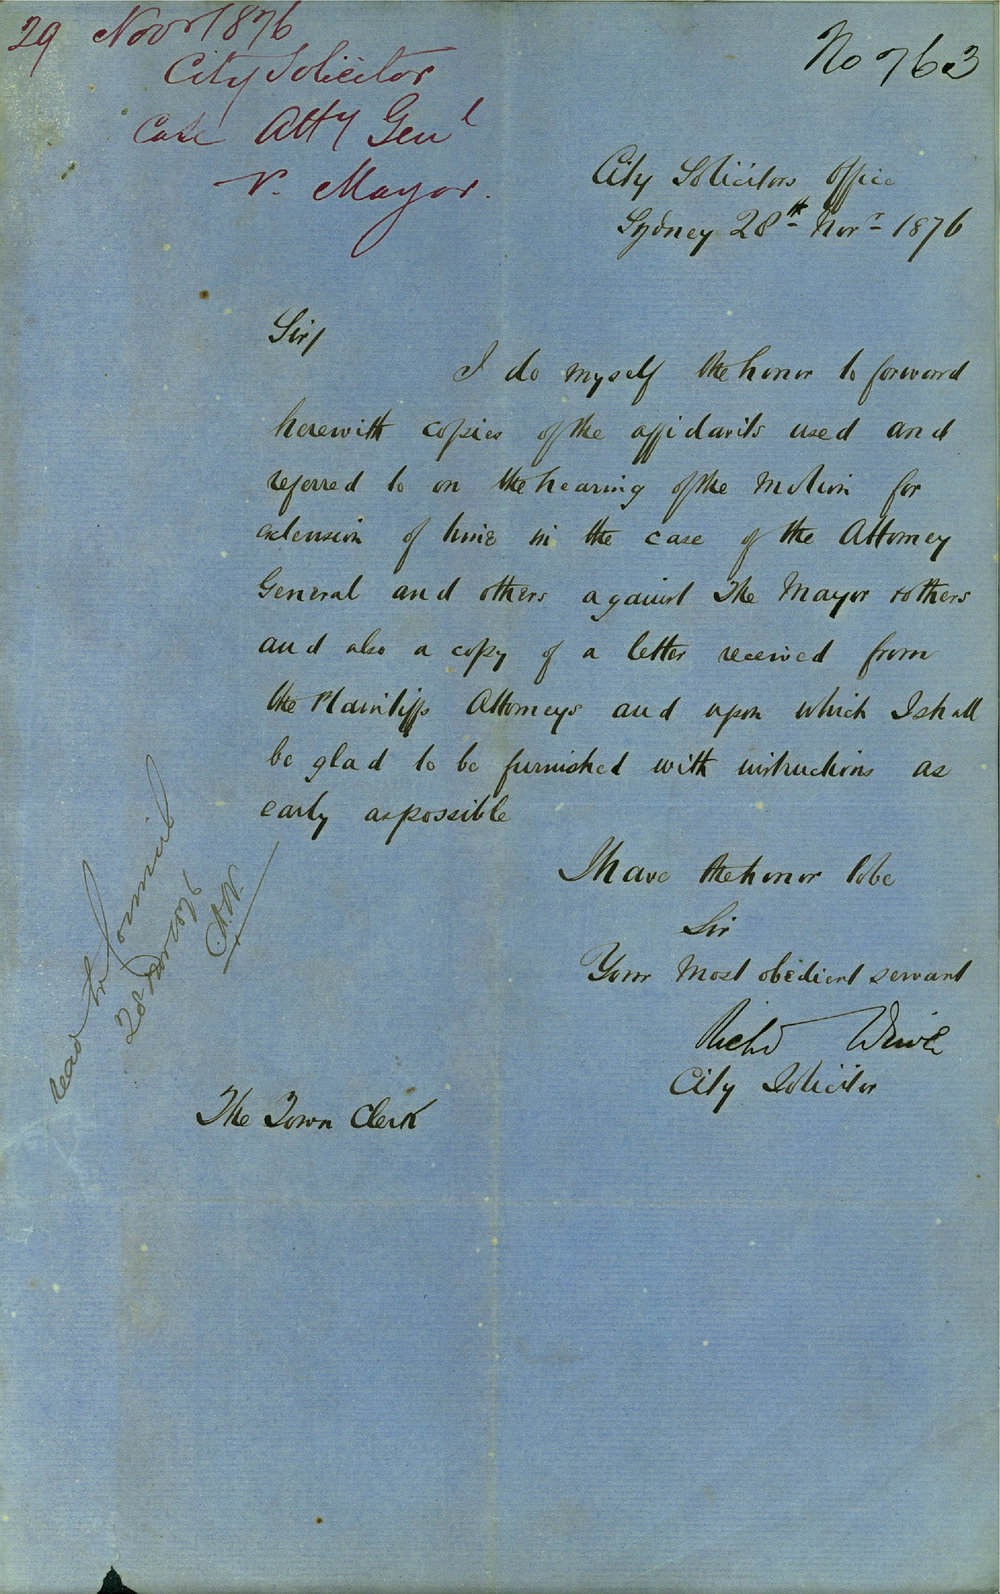 29 Novr 1876
City Solicitor
Case Atty Genl
v. Mayor.
No 763
City Solicitors Office
Sydney 28th Novr 1876
Sir/
I do myself the honor to forward
herewith copies of the affidavits used and
referred to on the hearing of the Motion for
extension of time in the case of the Attorney
General and others against The Mayor & others
and also a copy of a letter received from
the Plaintiffs Attorneys and upon which I shall
be glad to be furnished with instructions as
early as possible
I have the honor to be
Sir
Your Most obedient servant
Richd
City Solicitor
The Town Clerk
read in Council
28 Nov 76